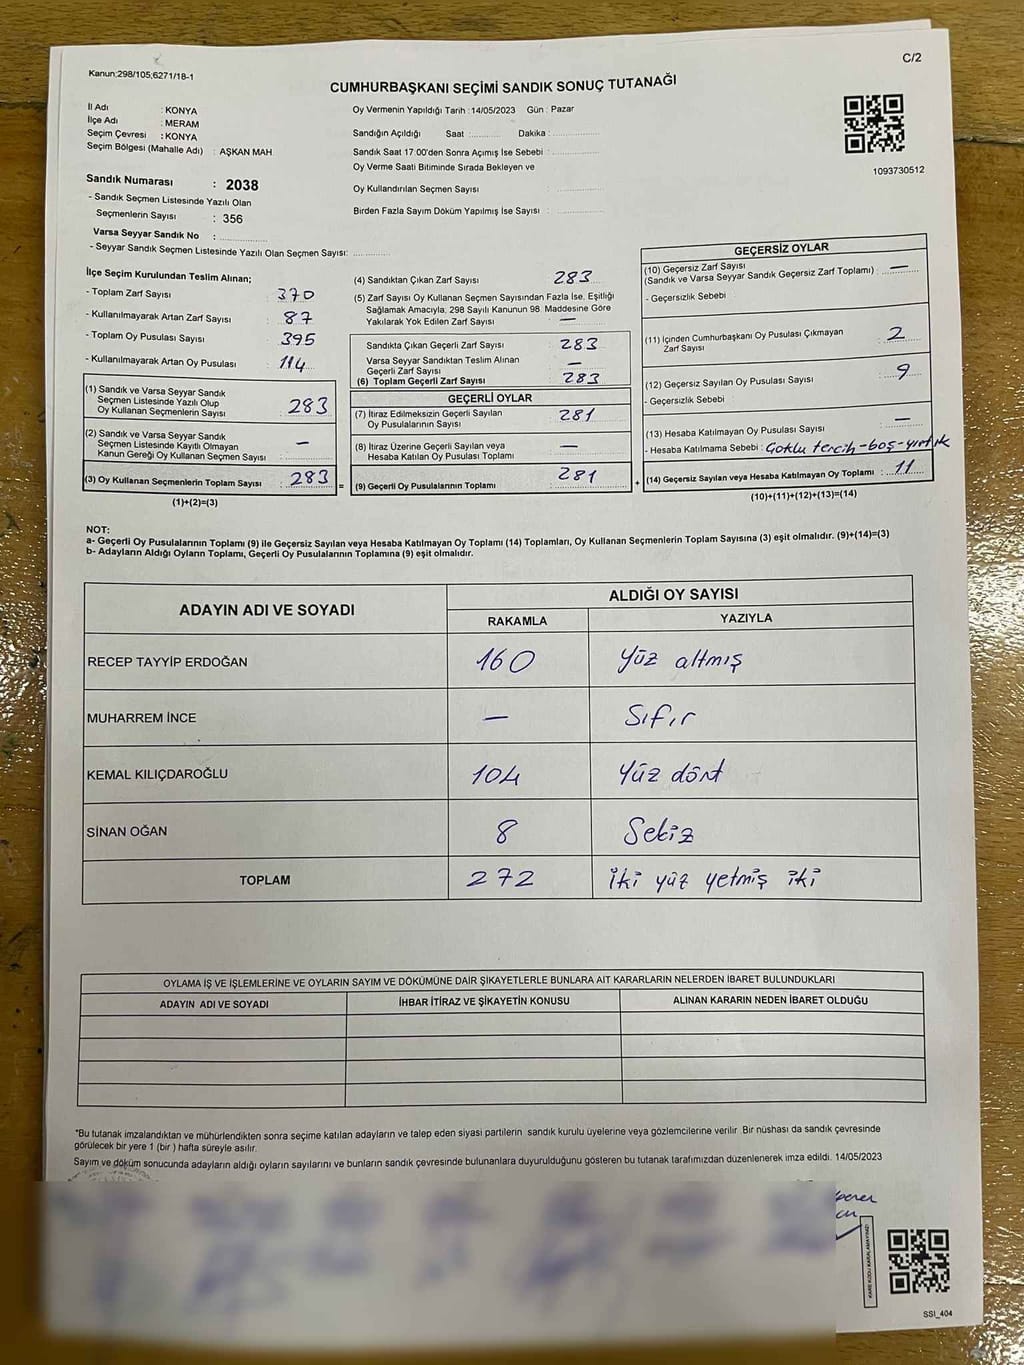 C/2
Kanun:298/105;6271/18-1
CUMHURBAŞKANI SEÇİMİ SANDIK SONUÇ TUTANAĞI
İl Adı : KONYA
İlçe Adı : MERAM
Seçim Çevresi : KONYA
Seçim Bölgesi (Mahalle Adı) : AŞKAN MAH
Sandık Numarası : 2038
- Sandık Seçmen Listesinde Yazılı Olan
Seçmenlerin Sayısı : 356
Varsa Seyyar Sandık No :
- Seyyar Sandık Seçmen Listesinde Yazılı Olan Seçmen Sayısı:
Oy Vermenin Yapıldığı Tarih : 14/05/2023 Gün : Pazar
Sandığın Açıldığı Saat : Dakika :
Sandık Saat 17:00'den Sonra Açımış İse Sebebi :
Oy Verme Saati Bitiminde Sırada Bekleyen ve
Oy Kullandırılan Seçmen Sayısı :
Birden Fazla Sayım Döküm Yapılmış İse Sayısı :
1093730512
İlçe Seçim Kurulundan Teslim Alınan;
- Toplam Zarf Sayısı : 370
- Kullanılmayarak Artan Zarf Sayısı : 87
- Toplam Oy Pusulası Sayısı : 395
- Kullanılmayarak Artan Oy Pusulası : 114
(1) Sandık ve Varsa Seyyar Sandık
Seçmen Listesinde Yazılı Olup
Oy Kullanan Seçmenlerin Sayısı : 283
(2) Sandık ve Varsa Seyyar Sandık
Seçmen Listesinde Kayıtlı Olmayan
Kanun Gereği Oy Kullanan Seçmen Sayısı : —
(3) Oy Kullanan Seçmenlerin Toplam Sayısı : 283 =
(1)+(2)=(3)
(4) Sandıktan Çıkan Zarf Sayısı : 283
(5) Zarf Sayısı Oy Kullanan Seçmen Sayısından Fazla İse, Eşitliği
Sağlamak Amacıyla, 298 Sayılı Kanunun 98. Maddesine Göre
Yakılarak Yok Edilen Zarf Sayısı : —
Sandıkta Çıkan Geçerli Zarf Sayısı : 283
Varsa Seyyar Sandıktan Teslim Alınan
Geçerli Zarf Sayısı : —
(6) Toplam Geçerli Zarf Sayısı : 283
GEÇERLİ OYLAR
(7) İtiraz Edilmeksizin Geçerli Sayılan
Oy Pusulalarının Sayısı : 281
(8) İtiraz Üzerine Geçerli Sayılan veya
Hesaba Katılan Oy Pusulası Toplamı : —
(9) Geçerli Oy Pusulalarının Toplamı : 281 +
GEÇERSİZ OYLAR
(10) Geçersiz Zarf Sayısı
(Sandık ve Varsa Seyyar Sandık Geçersiz Zarf Toplamı) : —
- Geçersizlik Sebebi
(11) İçinden Cumhurbaşkanı Oy Pusulası Çıkmayan
Zarf Sayısı : 2
(12) Geçersiz Sayılan Oy Pusulası Sayısı : 9
- Geçersizlik Sebebi :
(13) Hesaba Katılmayan Oy Pusulası Sayısı : —
- Hesaba Katılmama Sebebi : Çoklu tercih-boş-yırtık
(14) Geçersiz Sayılan veya Hesaba Katılmayan Oy Toplamı : 11
(10)+(11)+(12)+(13)=(14)
NOT:
a- Geçerli Oy Pusulalarının Toplamı (9) ile Geçersiz Sayılan veya Hesaba Katılmayan Oy Toplamı (14) Toplamları, Oy Kullanan Seçmenlerin Toplam Sayısına (3) eşit olmalıdır. (9)+(14)=(3)
b- Adayların Aldığı Oyların Toplamı, Geçerli Oy Pusulalarının Toplamına (9) eşit olmalıdır.
ADAYIN ADI VE SOYADI
ALDIĞI OY SAYISI
RAKAMLA YAZIYLA
RECEP TAYYİP ERDOĞAN 160 Yüz altmış
MUHARREM İNCE — Sıfır
KEMAL KILIÇDAROĞLU 104 Yüz dört
SİNAN OĞAN 8 Sekiz
TOPLAM 272 iki yüz yetmiş iki
OYLAMA İŞ VE İŞLEMLERİNE VE OYLARIN SAYIM VE DÖKÜMÜNE DAİR ŞİKAYETLERLE BUNLARA AİT KARARLARIN NELERDEN İBARET BULUNDUKLARI
ADAYIN ADI VE SOYADI İHBAR İTİRAZ VE ŞİKAYETİN KONUSU ALINAN KARARIN NEDEN İBARET OLDUĞU
*Bu tutanak imzalandıktan ve mühürlendikten sonra seçime katılan adayların ve talep eden siyasi partilerin sandık kurulu üyelerine veya gözlemcilerine verilir. Bir nüshası da sandık çevresinde
görülecek bir yere 1 (bir ) hafta süreyle asılır.
Sayım ve döküm sonucunda adayların aldığı oyların sayılarını ve bunların sandık çevresinde bulunanlara duyurulduğunu gösteren bu tutanak tarafımızdan düzenlenerek imza edildi. 14/05/2023
KARE KODU KARALAMAYINIZ!
SSI_404